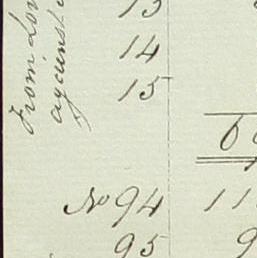 From Lon
against
13
14
15
6
No 94 11
95 9